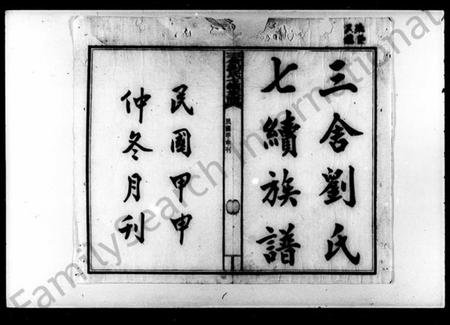 三舍劉氏
七續族譜
民國甲申
仲冬月刊
民國甲申刊
FamilySearch International